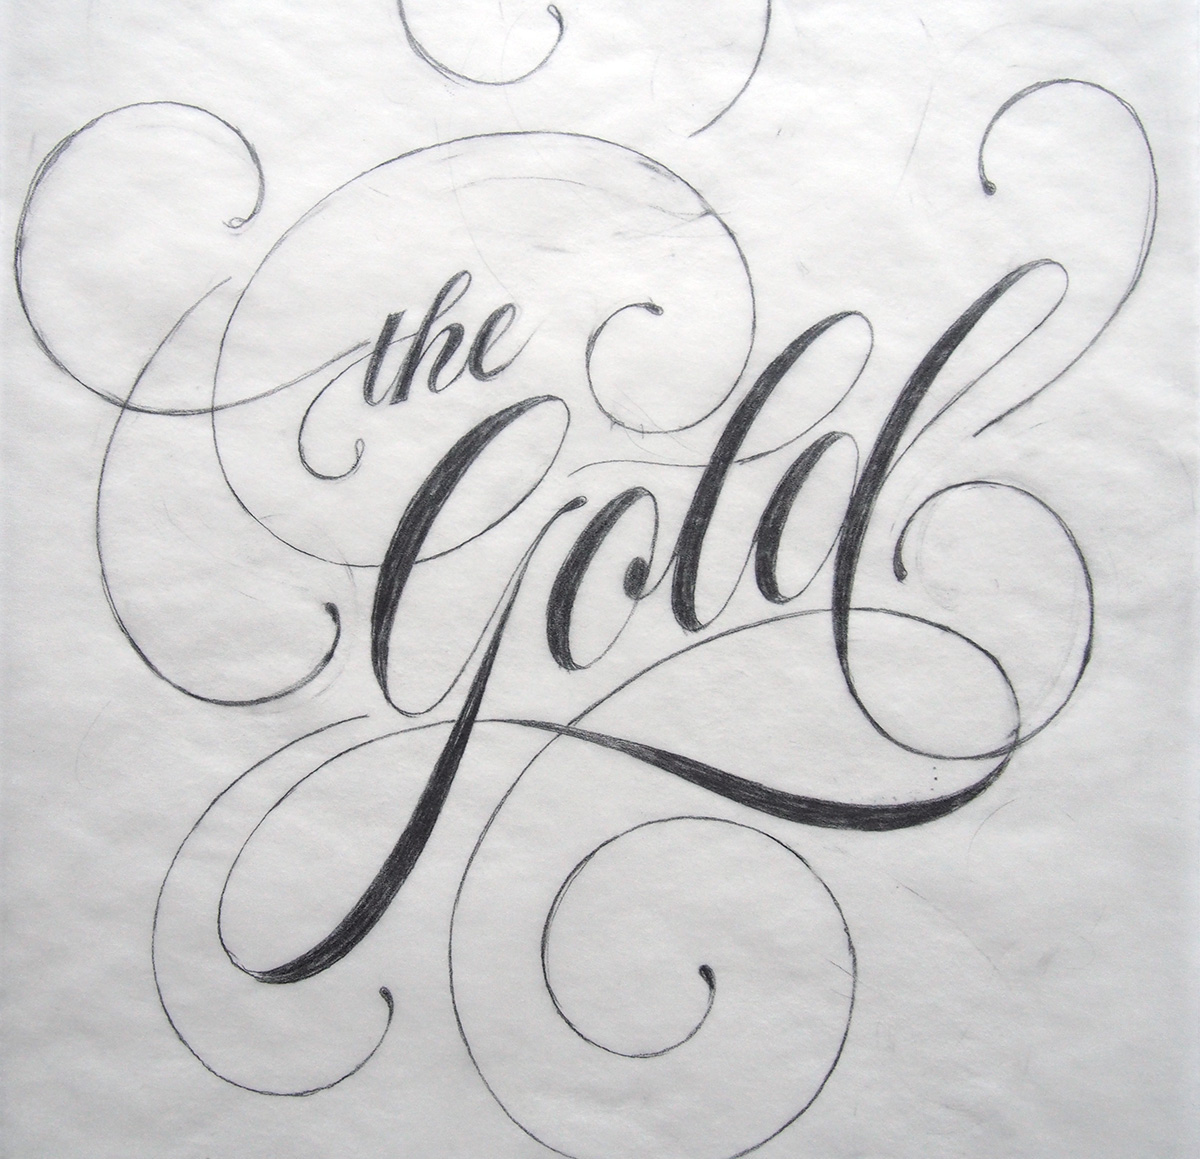 the
Gold